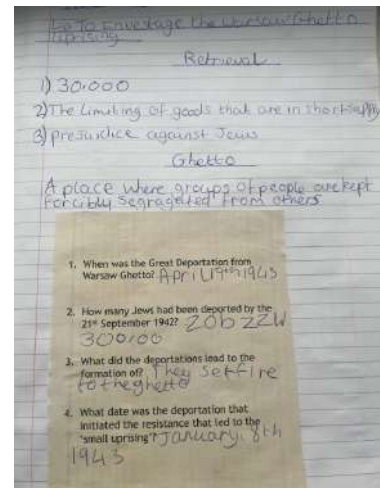 Lo To Envestage the Warsaw Ghetto
Uprising
Retrieval
1) 30.000
2) The Limiting of goods that are in short supply
3) prejuidice against Jews
Ghetto
A place where groups of people are kept
forcibly segragated from others
1. When was the Great Deportation from
Warsaw Ghetto? April 19th 1943
2. How many Jews had been deported by the
21st September 1942? ZOB ZZW
300,00
3. What did the deportations lead to the
formation of? They set fire
to the ghetto
4. What date was the deportation that
initiated the resistance that led to the
'small uprising'? January 18th
1943